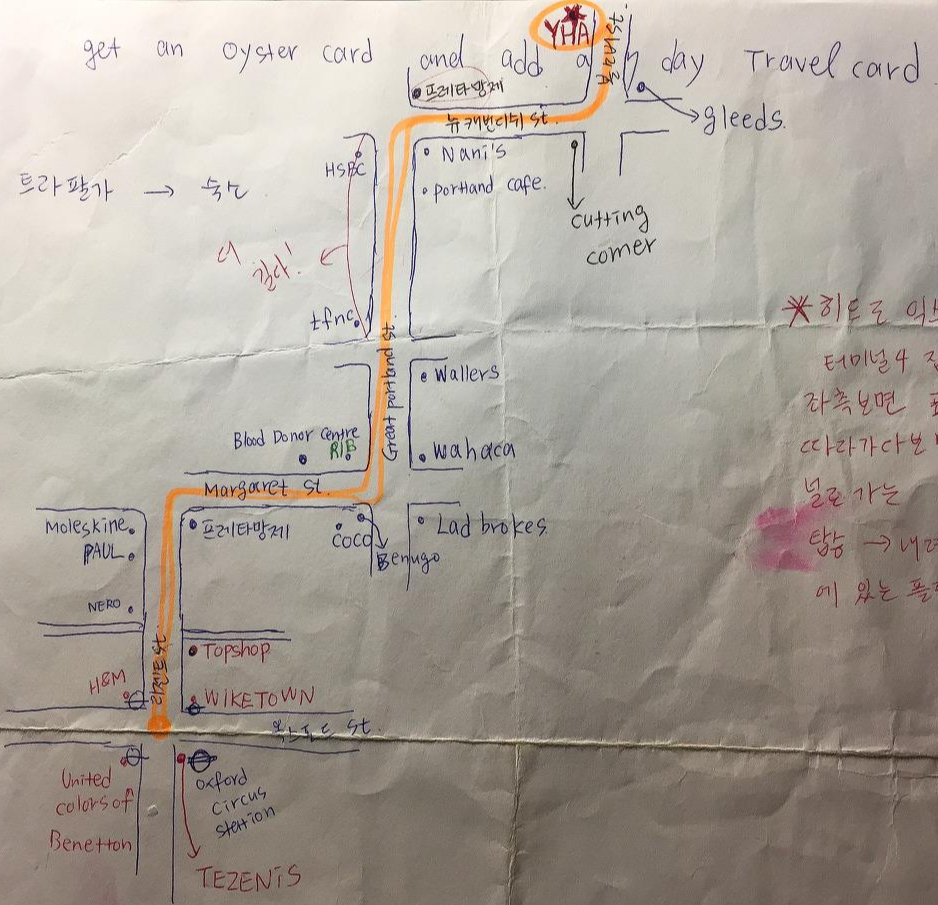 YHA
get an oyster card and add a day Travel card
프레타망제
뉴캐번디쉬 st.
gleeds.
HSBC
Nani's
portland cafe.
트라팔가 → 숙소
cutting
corner
더
길다!
tfnc.
Great portland st.
*히드로 익스
터미널 4
좌측보면
따라가다보
널로 가는
탑승 → 내려
에 있는 플
Wallers
Blood Donor Centre
RIB
wahaca
Margaret st.
Moleskine.
PAUL.
NERO
프레타망제
coco
Benugo
Lad brokes.
H&M
Topshop
WIKETOWN
옥스포드 st.
United
colors of
Benetton
oxford
circus
station
TEZENIS